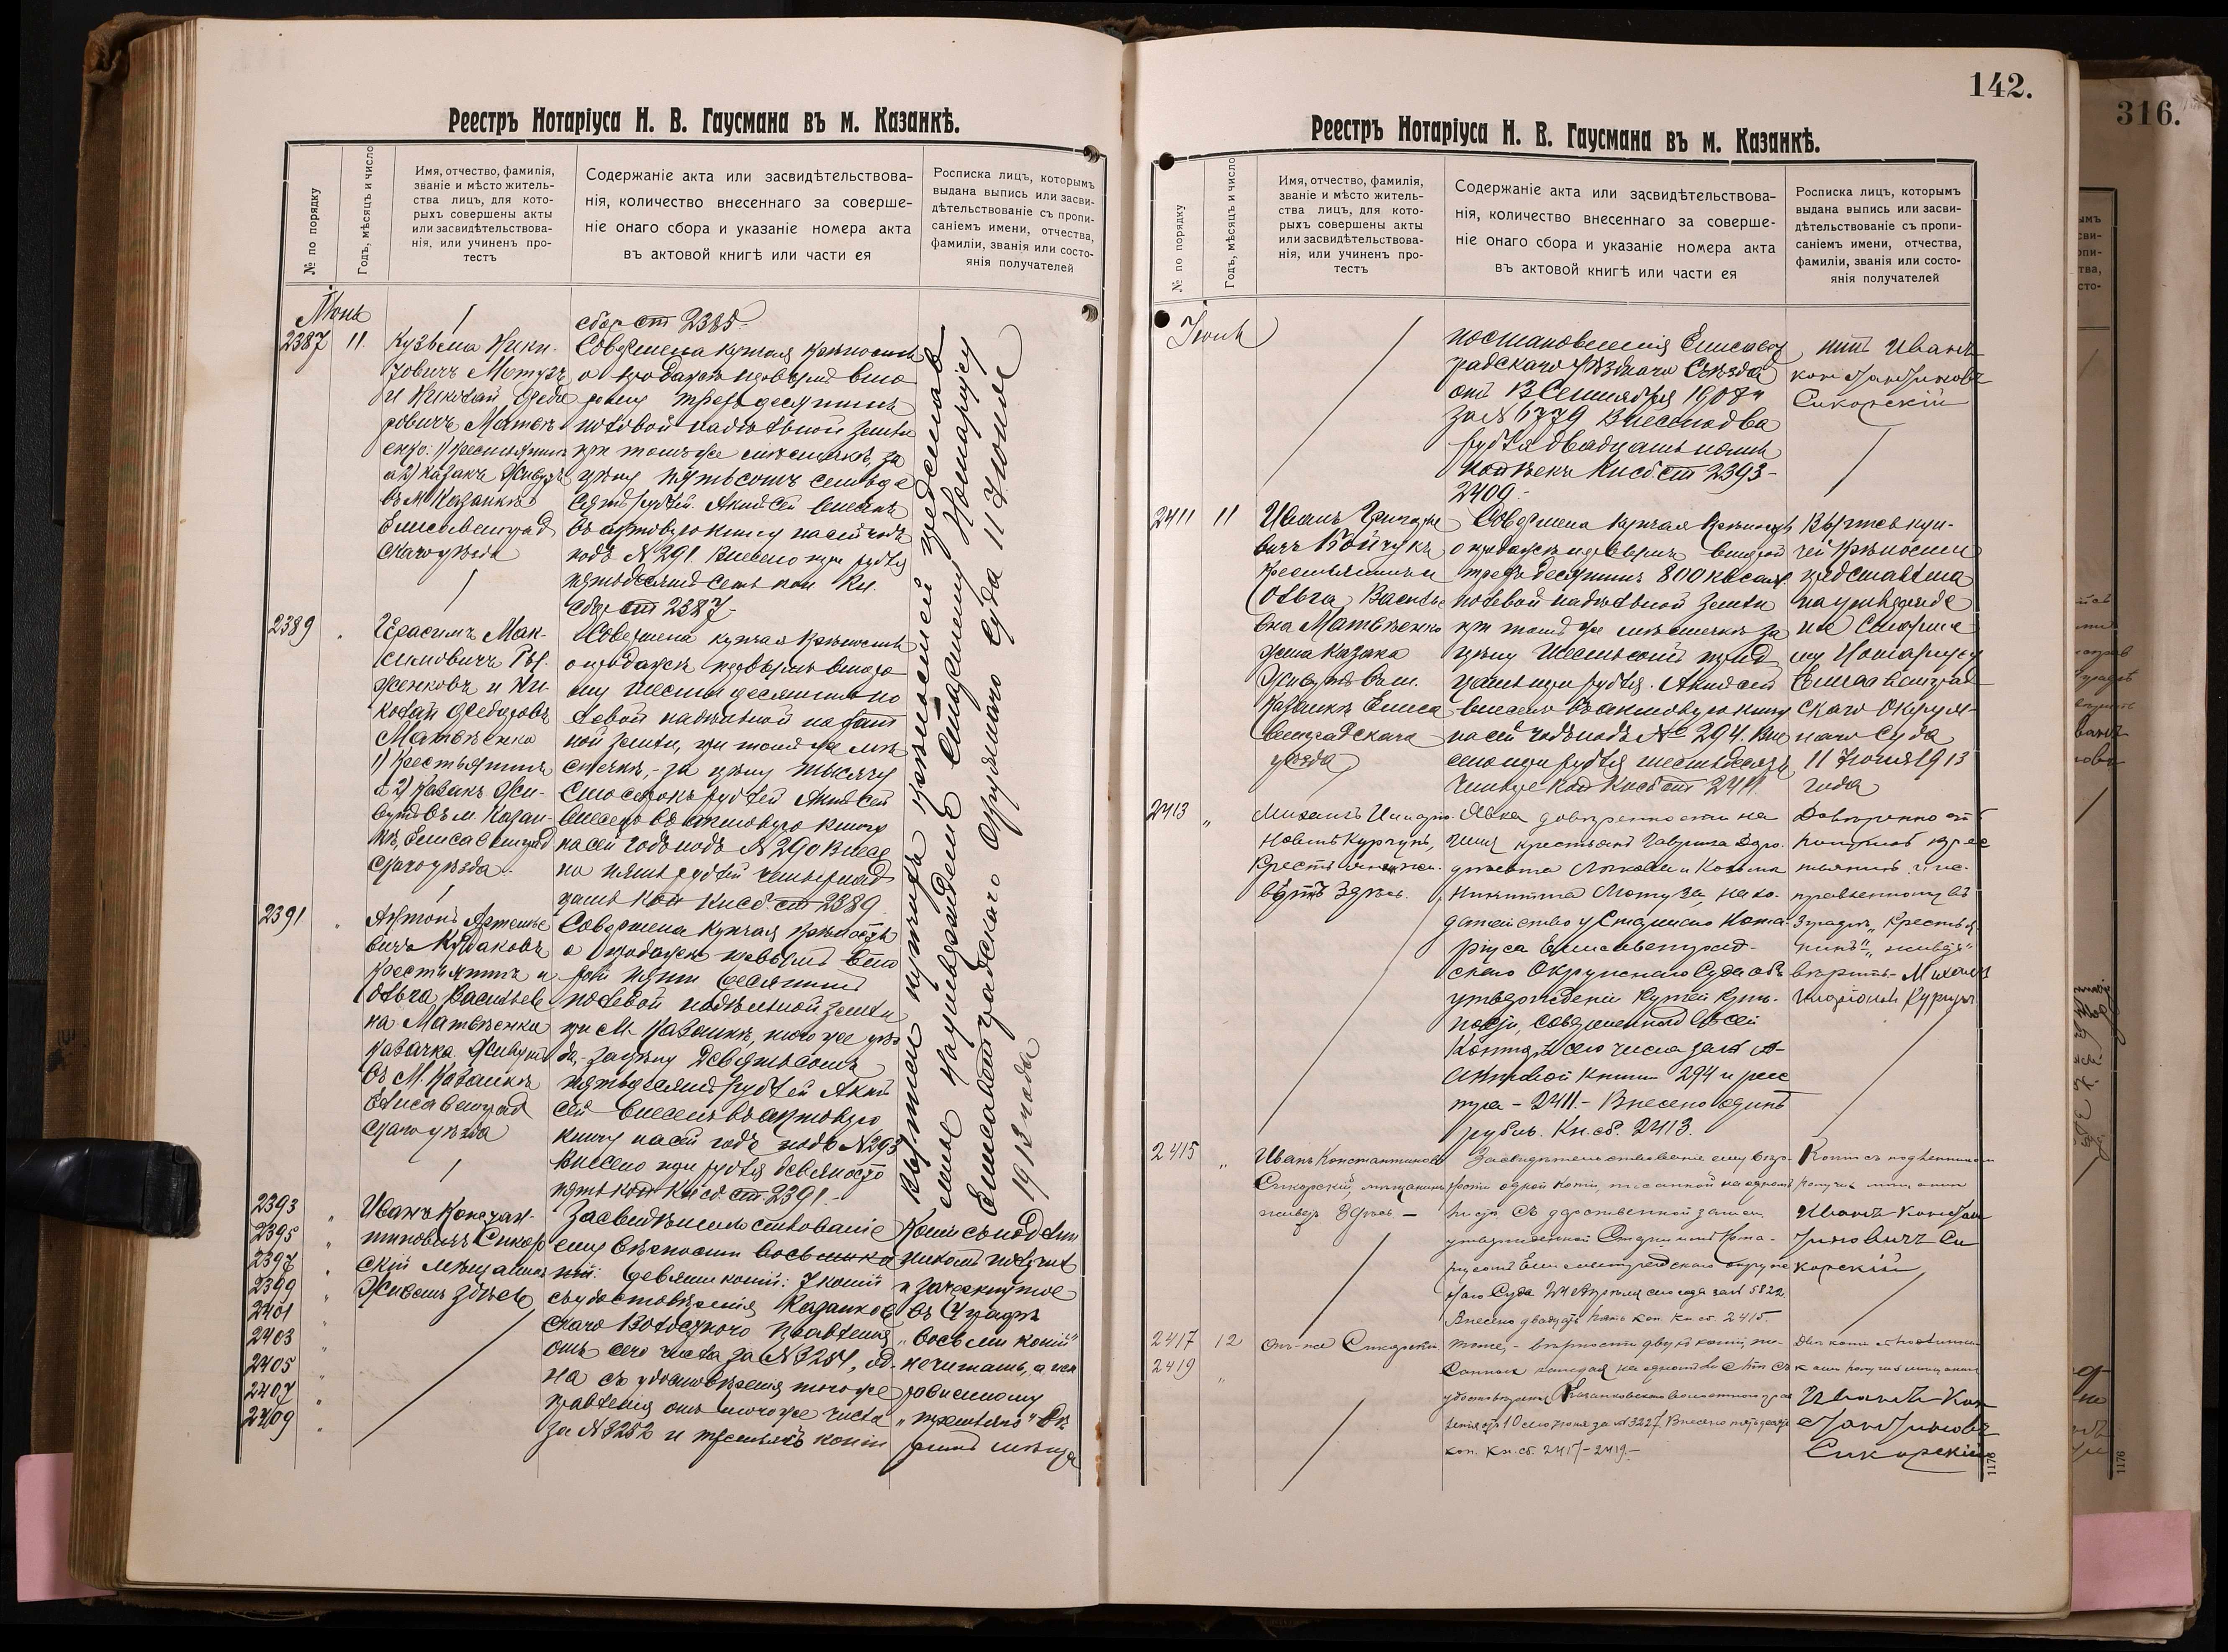 142.
316.
Реестръ Нотаріуса Н. В. Гаусмана въ м. Казанкѣ.
№ по порядку
Годъ, мѣсяцъ и число
Имя, отчество, фамилія,
званіе и мѣсто житель-
ства лицъ, для кото-
рыхъ совершены акты
или засвидѣтельствова-
нія, или учиненъ про-
тестъ
Содержаніе акта или засвидѣтельствова-
нія, количество внесеннаго за соверше-
ніе онаго сбора и указаніе номера акта
въ актовой книгѣ или части ея
Росписка лицъ, которымъ
выдана выпись или засви-
дѣтельствованіе съ пропи-
саніемъ имени, отчества,
фамиліи, званія или состо-
янія получателей
Іюнь
сбор ст 2385
2387 11.
Кузьма Ники-
и Николай Федо
ровичъ Матвѣ-
енко: 1) крестьянинъ
а 2) казакъ Живутъ
въ М Казанкѣ
Елисаветград
скаго уѣзда
Совершена купчая крѣпость
о продажѣ первымъ вто
рому трехъ десятинъ
полевой надѣльной земли
при томъ же мѣстечкѣ, за
цѣну пятьсотъ семьде
сятъ рублей. Актъ сей внесенъ
въ актовую книгу на сей годъ
подъ № 291. Внесено три рубля
пятьдесятъ семь коп Кн.
сбор ст 2387-
2389
Герасимъ Мак-
симовичъ
женковъ и Ни-
колай Федоровъ
Матвѣенко
1) Крестьянинъ
а 2) Казакъ Жи-
вутъ въ м. Казан-
кѣ, Елисаветград
скаго уѣзда.
Совершена купчая крѣпость
о продажѣ первымъ второ
му шести десятинъ по
левой надѣльной
ной земли, при томъ же мѣ
стечкѣ,- за цѣну тысячу
сто сорокъ рублей Актъ сей
внесенъ въ актовую книгу
на сей годъ подъ № 290 Внесе
но пять рублей четырнад
цать коп Кн сб. ст 2389
2391
Антонъ Артемье
вичъ Кудаковъ
крестьянинъ и
Ольга Васильев
на Матвѣенко
казачка Живутъ
въ М. Казанкѣ
Елисаветград
скаго уѣзда
Совершена Купчая крѣпость
о продажѣ первымъ вто
рой пяти десятинъ
полевой надѣльной земли
при М. Казанкѣ, того же уѣз
да,- за цѣну девятьсотъ
пятьдесятъ рублей Актъ
сей внесенъ въ актовую
книгу на сей годъ подъ № 293
Внесено три рубля девяносто
пять коп Кн сб. ст. 2391-
2393
2395
2397
2399
2401
2403
2405
2407
2409
Иванъ Констан-
тиновичъ Сикор
скій мѣщанинъ
Живетъ здѣсь
Засвидѣтельствованіе
ему вѣрности восьми ко
пій: девяти копій: 7 копій
съ удостовѣренія Казанков
скаго Волостного Правленія
отъ сего числа за № 3254, од-
на съ удостовѣренія того же
правленія отъ того же числа
за № 3252 и третьяго копіи
Копіи съ подлин
никомъ получилъ
и зачеркнутое
въ 4 графѣ
„восьми копій"
не читать, а
„третьяго"
Выписи купчихъ крѣпостей представ
лены на утвержденіе Старшему Нотаріусу
Елисаветградскаго Окружнаго Суда 11 Іюня
1913 года
Реестръ Нотаріуса Н. В. Гаусмана въ м. Казанкѣ.
№ по порядку
Годъ, мѣсяцъ и число
Имя, отчество, фамилія,
званіе и мѣсто житель-
ства лицъ, для кото-
рыхъ совершены акты
или засвидѣтельствова-
нія, или учиненъ про-
тестъ
Содержаніе акта или засвидѣтельствова-
нія, количество внесеннаго за соверше-
ніе онаго сбора и указаніе номера акта
въ актовой книгѣ или части ея
Росписка лицъ, которымъ
выдана выпись или засви-
дѣтельствованіе съ пропи-
саніемъ имени, отчества,
фамиліи, званія или состо-
янія получателей
Іюнь
постановленія Елисавет
градскаго Уѣзднаго Съѣзда
отъ 13 Сентября 1907 г
за № 6779 Внесено два
рубля двадцать пять
копѣекъ Кн сб. ст 2393-
2409.-
Иванъ
Константиновъ
Сикорскій
2411 11
Иванъ Григорье
вичъ Бойчукъ
крестьянинъ и
Ольга Василье
вна Матвѣенко
жена казака
Живутъ въ м.
Казанкѣ Елиса
ветградскаго
уѣзда
Совершена купчая крѣпость
о продажѣ первымъ второй
трехъ десятинъ 800 кв саж.
полевой надѣльной земли
при томъ же мѣстечкѣ за
цѣну шестьсотъ трид
цать три рубля. Актъ сей
внесенъ въ актовую книгу
на сей годъ подъ № 294. Вне
сено три рубля шестьдесятъ
четыре коп Кн сб ст 2411
Выпись куп-
чей крѣпости
представлена
на утвержде
ніе Старше
му Нотаріусу
Елисаветград
скаго Окруж-
наго Суда
11 Іюня 1913
года
2413 „
Михаилъ
новичъ Курчунъ,
крестьянинъ, жи-
ветъ здѣсь.
Явка довѣренности на
имя крестьянъ Гавріила
Никитина Мотуза, на хо-
датайство у Старшаго Нота-
ріуса Елисаветград-
скаго Окружнаго Суда объ
утвержденіи купчей крѣ-
пости, совершенной въ сей
конторѣ сего числа за № А-
актовой книги 294 и рее
стра - 2411.- Внесено одинъ
рубль. Кн. сб. 2413.
Довѣренность
2415 „
Иванъ Константиновъ
Сикорскій, мѣщанинъ
живетъ здѣсь.-
Засвидѣтельствованіе ему вѣр-
ности одной копіи, писанной на одномъ
листѣ съ дарственной записи
утвержденной Старшимъ Нота-
ріусомъ Елисаветградскаго окруж
наго Суда 24 Апрѣля сего года за № 5822.
Внесено двадцать пять коп. Кн сб. 2415.
Копію съ подлинникомъ
получилъ мѣщанинъ
Иванъ Констан
тиновичъ Си
корскій
2417 12
2419 „
Онъ-же Сикорскій.
Тоже,- вѣрности двухъ копій, пи-
санныхъ каждая на одномъ листѣ съ
удостовѣренія Казанковскаго Волостного прав
ленія отъ 10 сего Іюня за № 3227. Внесено пятьдесятъ
коп. Кн. сб. 2417-2419.-
Двѣ копіи съ подлинни
ками получилъ мѣщанинъ
Иванъ Кон
стантиновъ
Сикорскій
1176
1176